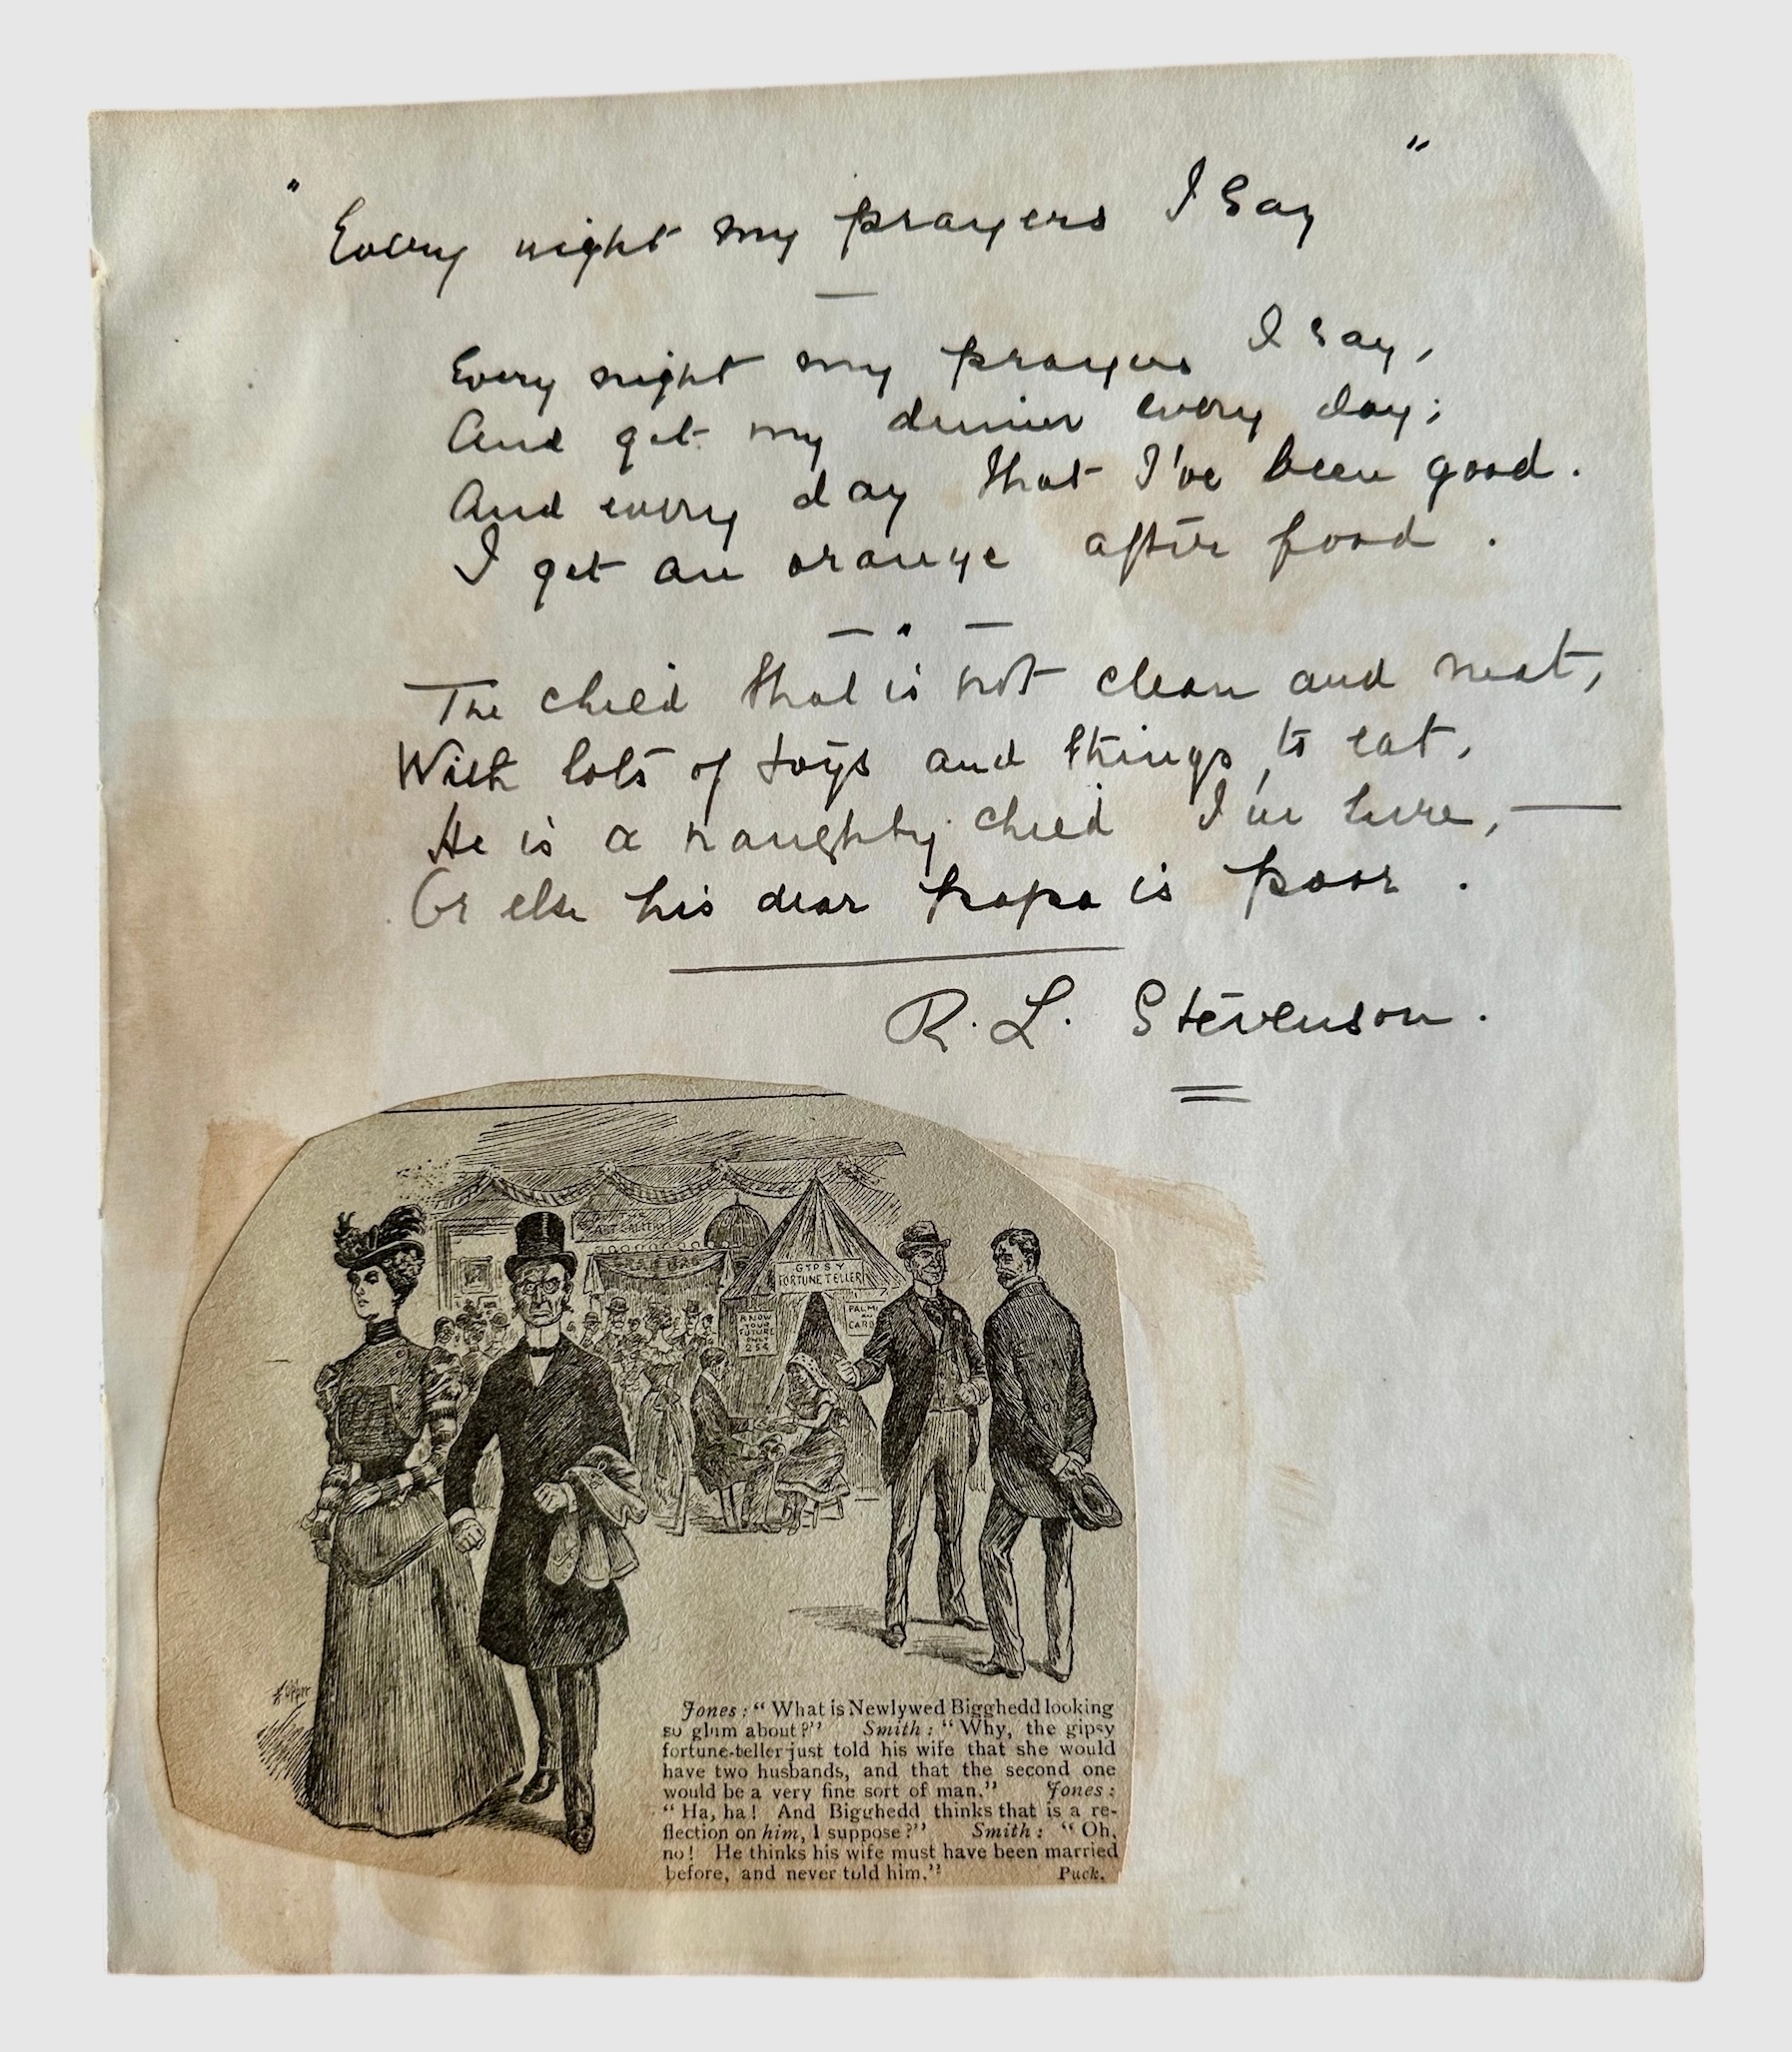 "Every night my prayers I say"
Every night my prayers I say,
And get my dinner every day;
And every day that I've been good.
I get an orange after food.
The child that is not clean and neat,
With lots of toys and things to eat,
He is a naughty child I'm sure, —
Or else his dear papa is poor.
R. L. Stevenson.
ART GALLERY
GYPSY
FORTUNE TELLER
KNOW
YOUR
FUTURE
ONLY
25¢
PALM
CARD
Jones: "What is Newlywed Bigghedd looking
so glum about?" Smith: "Why, the gipsy
fortune-teller just told his wife that she would
have two husbands, and that the second one
would be a very fine sort of man." Jones:
"Ha, ha! And Bigghedd thinks that is a re-
flection on him, I suppose?" Smith: "Oh,
no! He thinks his wife must have been married
before, and never told him." Puck.